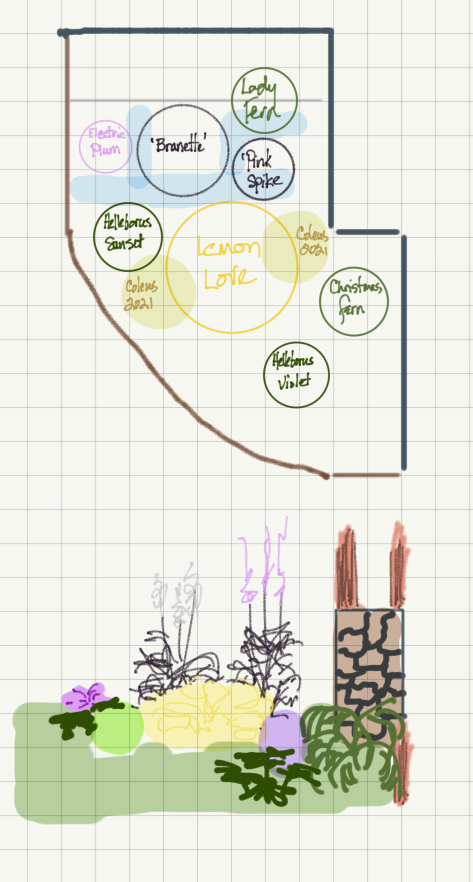 Lady
Fern
Electric
Plum
'Brunette'
'Pink
Spike
Helleborus
Sunset
Lemon
Love
Coleus
2021
Coleus
2021
Christmas
fern
Helleborus
Violet